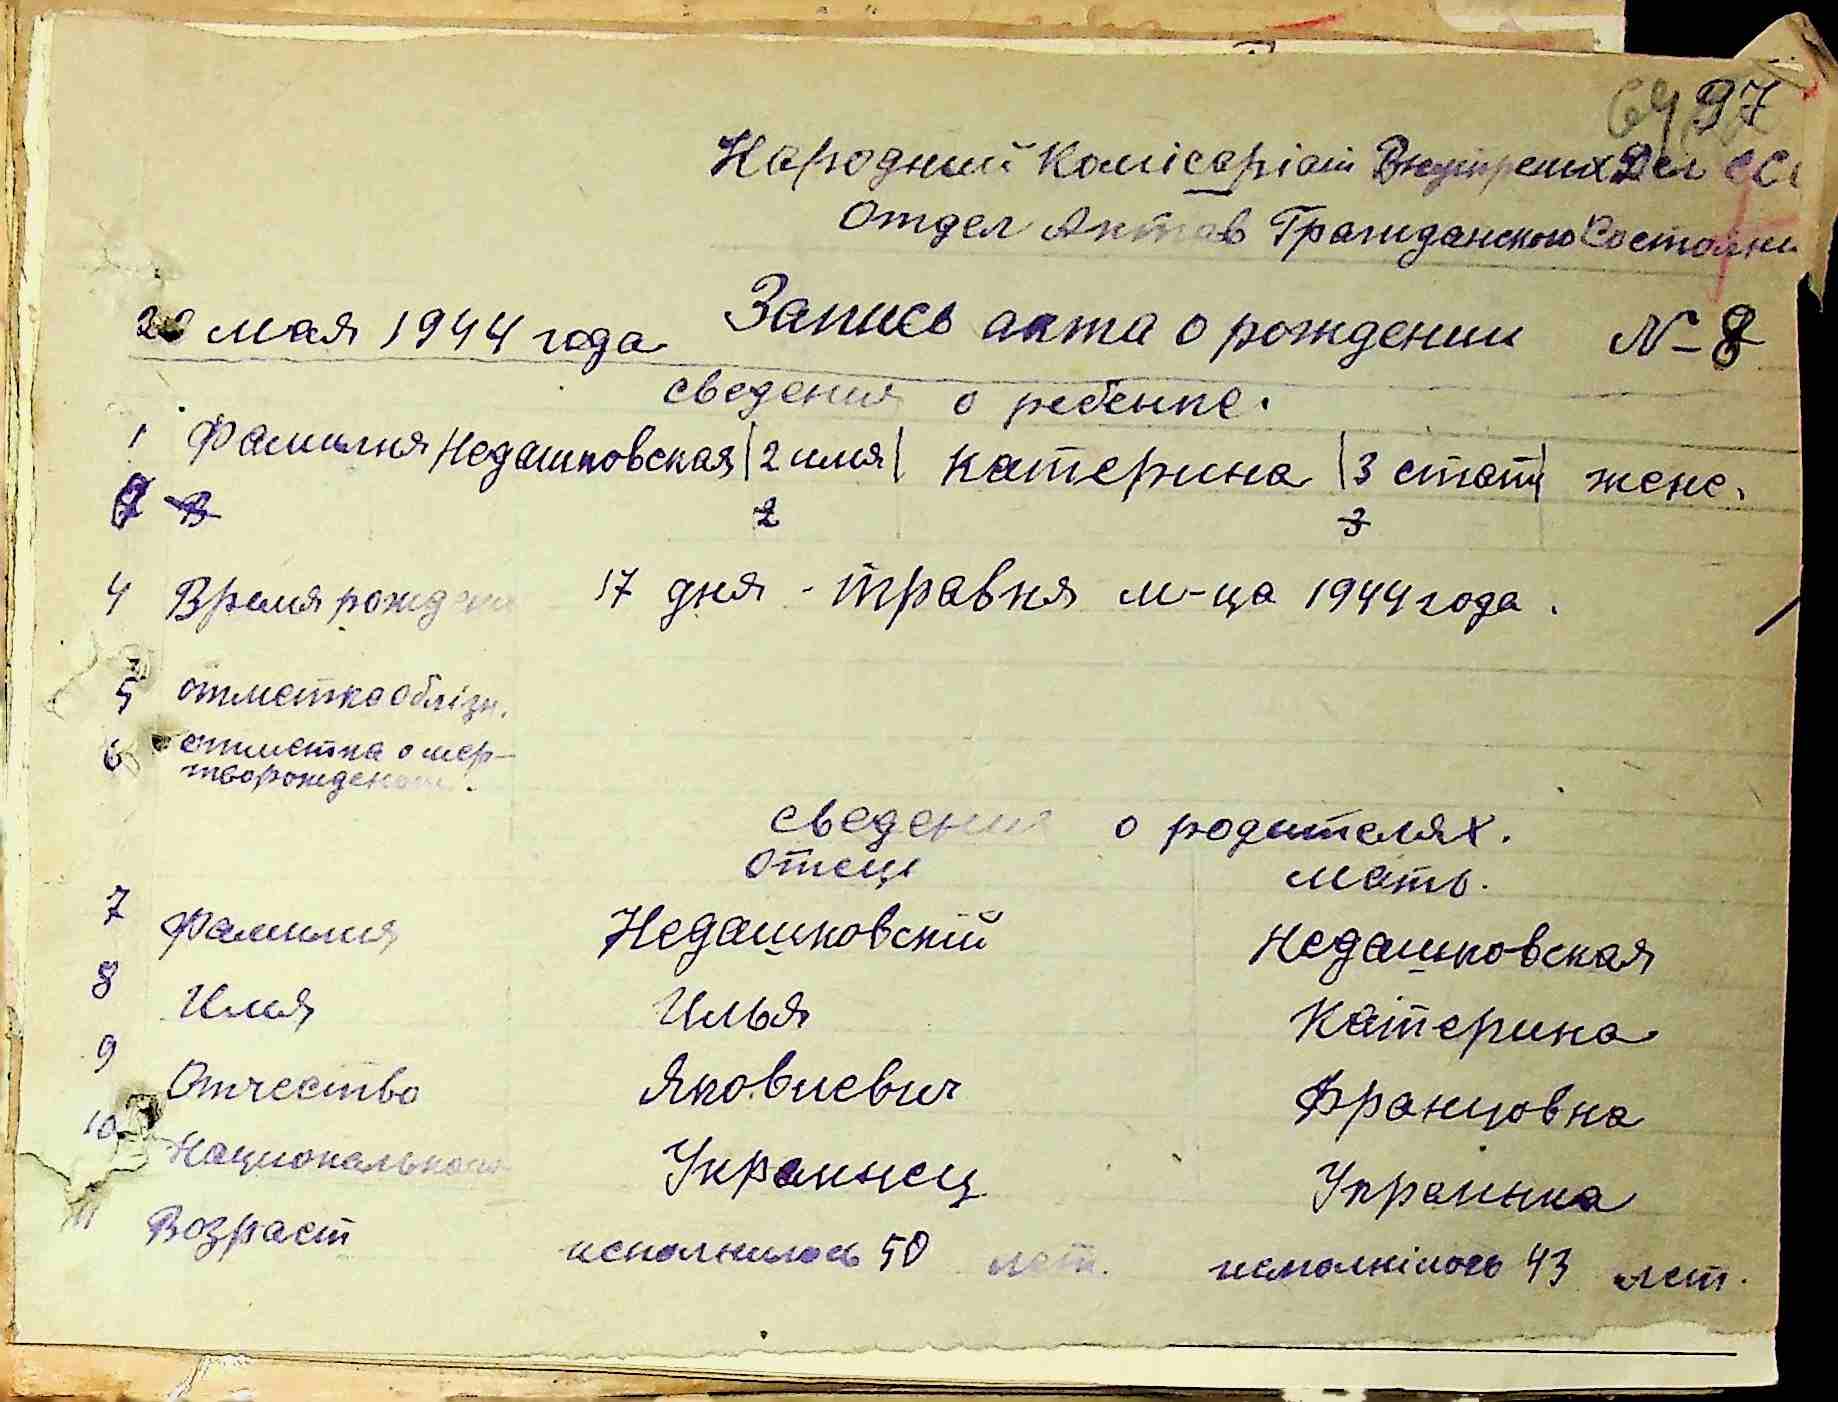 97
Народний Комісаріат Внутрених Дел ССС
Отдел Актов Гражданского Состояни
20 мая 1944 года Запись акта о рождении № 8
сведения о ребенке.
1 Фамилия Недашковская 2 имя Катерина 3 стать женс.
2 3
4 Время рождени 17 дня - травня м-ца 1944 года.
5 отметка о блізн.
6 отметка о мер-
творожденом.
сведения о родителях.
отец мать.
7 Фамилия Недашковскій Недашковская
8 Имя Илья Катерина
9 Отчество Яковлевич Францовна
10 Национальность Украинец Украінка
11 Возраст исполнилось 50 лет. исполнілось 43 лет.